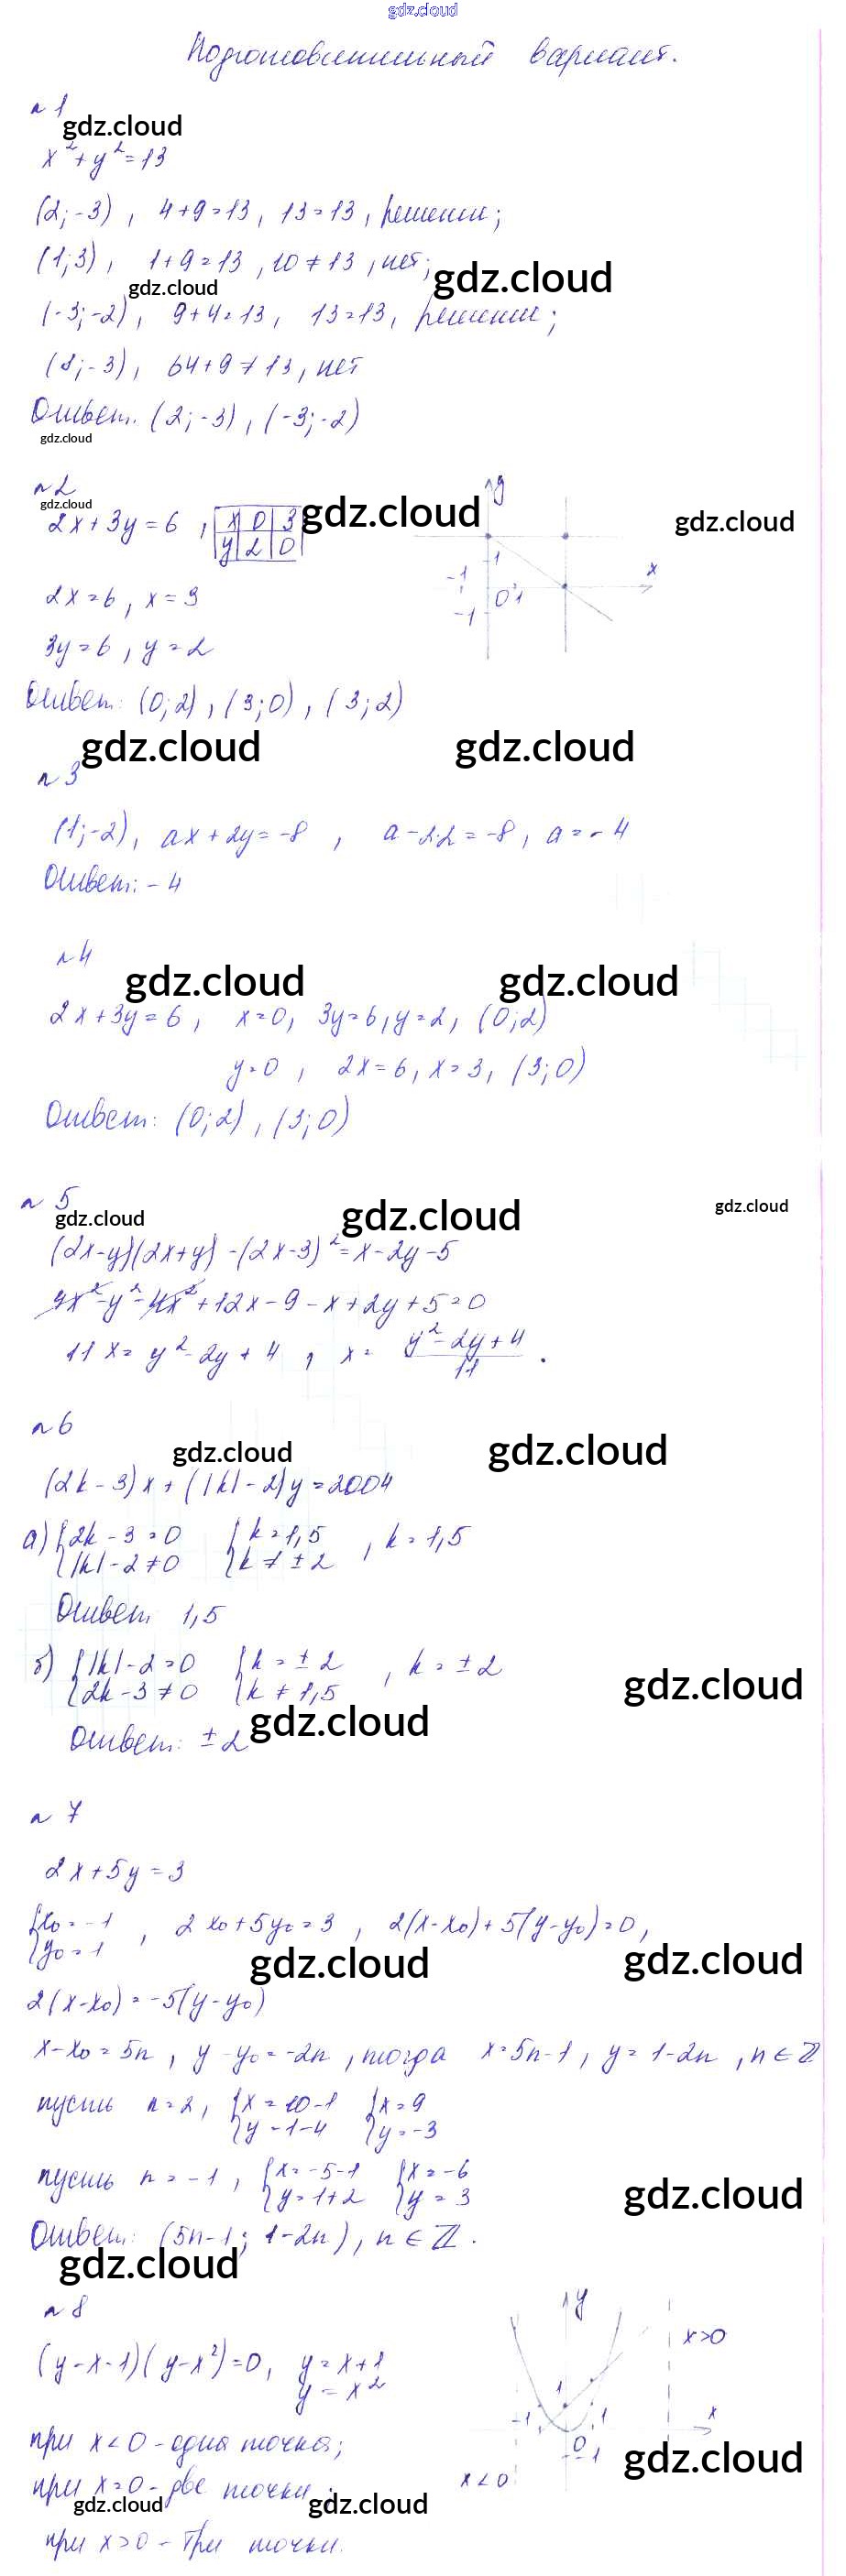 gdz.cloud
Подготовительный вариант.
№1
gdz.cloud
x² + y² = 13
(2; -3), 4+9=13, 13=13, решения;
(1; 3), 1+9=13, 10≠13, нет;
gdz.cloud
gdz.cloud
(-3; -2), 9+4=13, 13=13, решение;
(8; -3), 64+9≠13, нет
Ответ. (2; -3), (-3; -2)
gdz.cloud
№2
gdz.cloud
gdz.cloud
gdz.cloud
2x+3y=6, x 0 3
y 2 0
y
1
x
-1
0 1
-1
2x=6, x=3
3y=6, y=2
Ответ: (0; 2), (3; 0), (3; 2)
gdz.cloud
gdz.cloud
№3
(1; -2), ax+2y=-8, a-2·2=-8, a=-4
Ответ: -4
№4
gdz.cloud
gdz.cloud
2x+3y=6, x=0, 3y=6, y=2, (0; 2)
y=0, 2x=6, x=3, (3; 0)
Ответ: (0; 2), (3; 0)
№5
gdz.cloud
gdz.cloud
gdz.cloud
(2x-y)(2x+y)-(2x-3)²=x-2y-5
4x²-y²-4x²+12x-9-x+2y+5=0
11x=y²-2y+4, x= y²-2y+4
11 .
№6
gdz.cloud
gdz.cloud
(2k-3)x+(|k|-2)y=2004
а) {2k-3=0 {k=1,5 , k=1,5
{|k|-2≠0 {k≠±2
Ответ 1,5
б) {|k|-2=0 {k=±2 , k=±2
{2k-3≠0 {k≠1,5
gdz.cloud
gdz.cloud
Ответ: ±2
№7
2x+5y=3
{x₀=-1 , 2x₀+5y₀=3, 2(x-x₀)+5(y-y₀)=0,
{y₀=1
gdz.cloud
gdz.cloud
2(x-x₀)=-5(y-y₀)
x-x₀=5n, y-y₀=-2n, тогда x=5n-1, y=1-2n, n∈ℤ
пусть n=2, {x=10-1 {x=9
{y=1-4 {y=-3
пусть n=-1, {x=-5-1 {x=-6
{y=1+2 {y=3
gdz.cloud
Ответ: (5n-1; 1-2n), n∈ℤ.
gdz.cloud
№8
y
x>0
(y-x-1)(y-x²)=0, y=x+1
y=x²
1
-1
1
x
0
-1
x<0
при x<0 - одна точка;
gdz.cloud
при x=0 - две точки;
gdz.cloud
gdz.cloud
при x>0 - три точки.